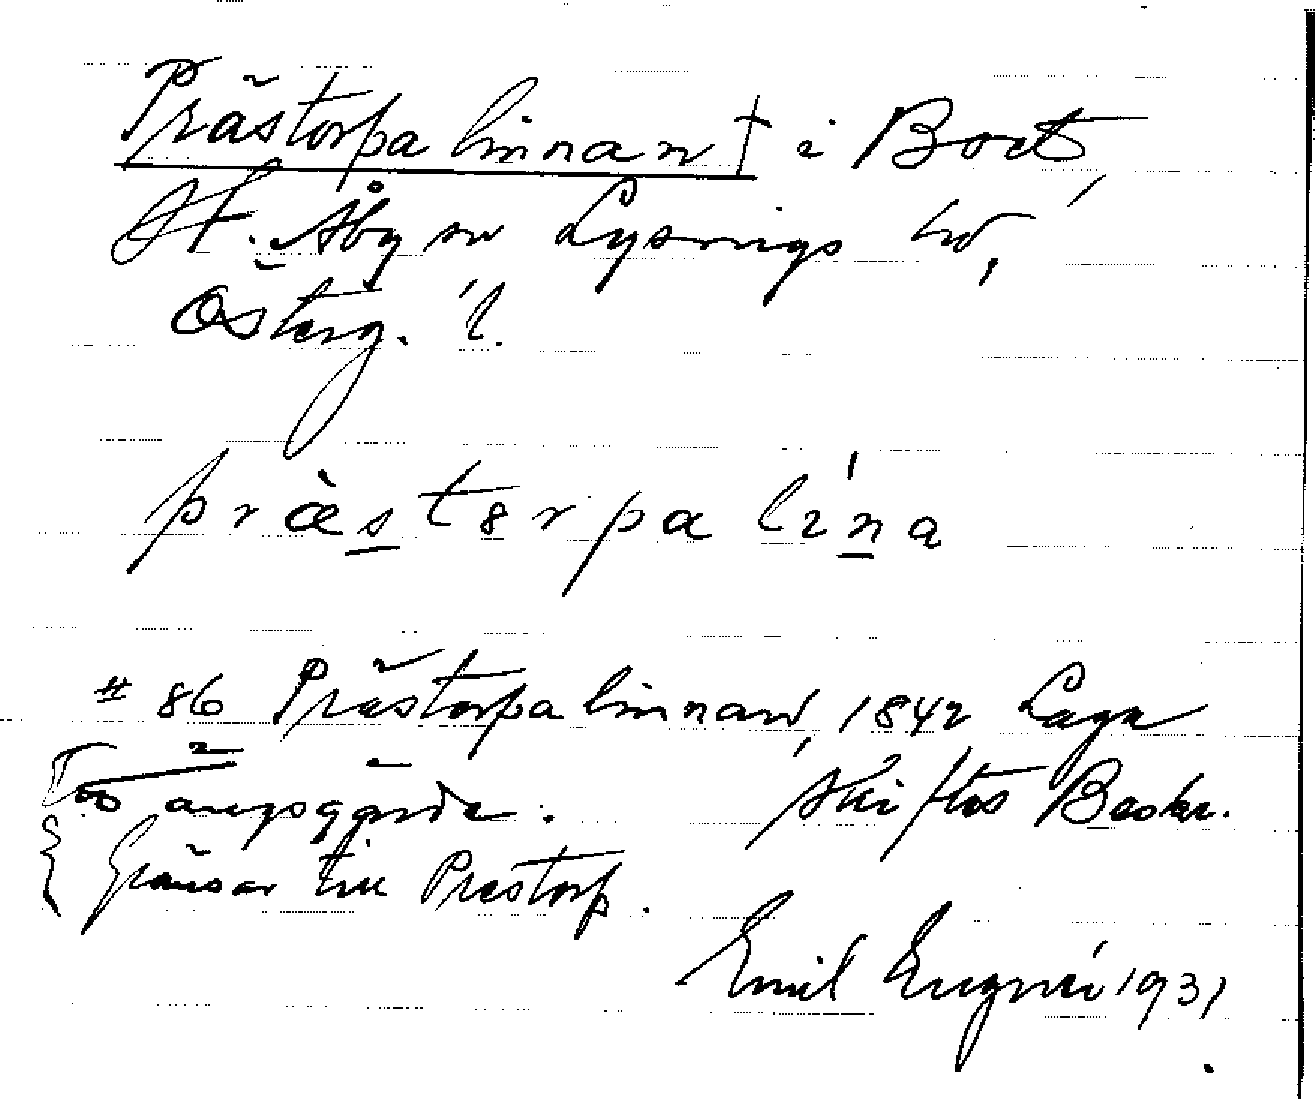 Prästorpalinnan † i Boet,
St. Åby sn Lysings hd,
Österg. l.
præsterpa lina
# 86 Prästorpalinnan, 1842 Laga
skiftes Beskr.
ängsgärde.
Gränsar till Prästorp.
Emil Eugnéi 1931